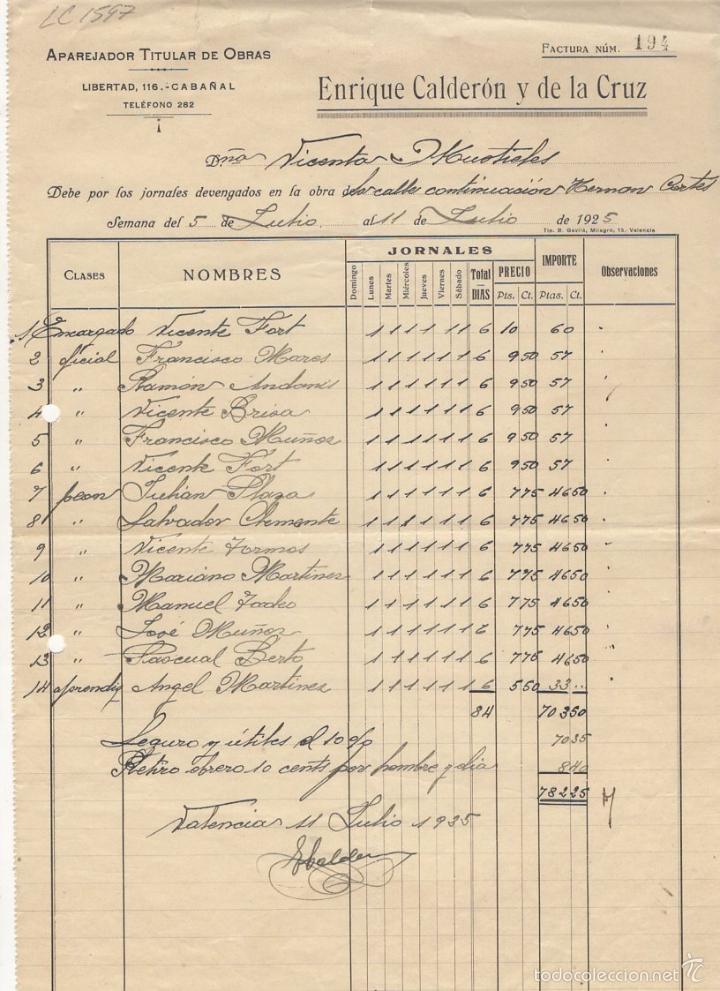 LC 1597
APAREJADOR TITULAR DE OBRAS
FACTURA NÚM. 194
LIBERTAD, 116.-CABAÑAL
TELÉFONO 282
Enrique Calderón y de la Cruz
Dña Vicenta
Debe por los jornales devengados en la obra de la calle continuación Hernan Cortes
Semana del 5 de Julio al 11 de Julio de 1925
Tip. B. Gavilá, Milagro, 15. Valencia
CLASES NOMBRES JORNALES PRECIO IMPORTE Observaciones
Domingo Lunes Martes Miércoles Jueves Viernes Sábado Total DIAS Pts. Ct. Ptas. Ct.
1 Encargado Vicente Fort 1 1 1 1 1 1 6 10 60
2 oficial Francisco Mares 1 1 1 1 1 1 6 9 50 57
3 " Ramón 1 1 1 1 1 1 6 9 50 57
4 " Vicente Brisa 1 1 1 1 1 1 6 9 50 57
5 " Francisco Muñoz 1 1 1 1 1 1 6 9 50 57
6 " Vicente Fort 1 1 1 1 1 1 6 9 50 57
7 peon Julián Plaza 1 1 1 1 1 1 6 7 75 46 50
8 " Salvador Clemente 1 1 1 1 1 1 6 7 75 46 50
9 " Vicente Formos 1 1 1 1 1 1 6 7 75 46 50
10 " Mariano Martinez 1 1 1 1 1 1 6 7 75 46 50
11 " Manuel 1 1 1 1 1 1 6 7 75 46 50
12 " José Muñoz 1 1 1 1 1 1 6 7 75 46 50
13 " Pascual Berto 1 1 1 1 1 1 6 7 75 46 50
14 aprendiz Angel Martinez 1 1 1 1 1 1 6 5 50 33 ..
84 703 50
Seguro y útiles el 10% 70 35
Retiro obrero 10 cents por hombre y dia 8 40
782 25
Valencia 11 Julio 1925
ECalderon
todocoleccion.net